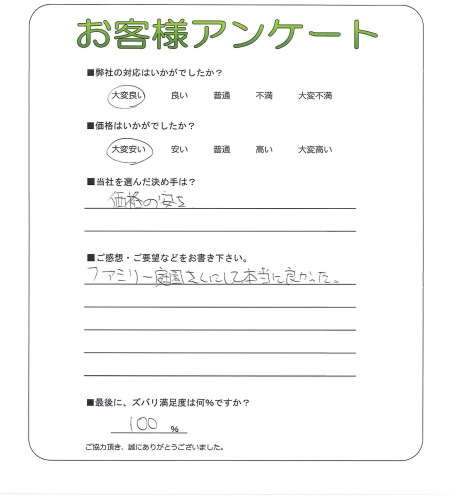 お客様アンケート
■弊社の対応はいかがでしたか？
大変良い 良い 普通 不満 大変不満
■価格はいかがでしたか？
大変安い 安い 普通 高い 大変高い
■当社を選んだ決め手は？
価格の安さ
■ご感想・ご要望などをお書き下さい。
ファミリー庭園さんにして本当に良かった。
■最後に、ズバリ満足度は何%ですか？
100 %
ご協力頂き、誠にありがとうございました。